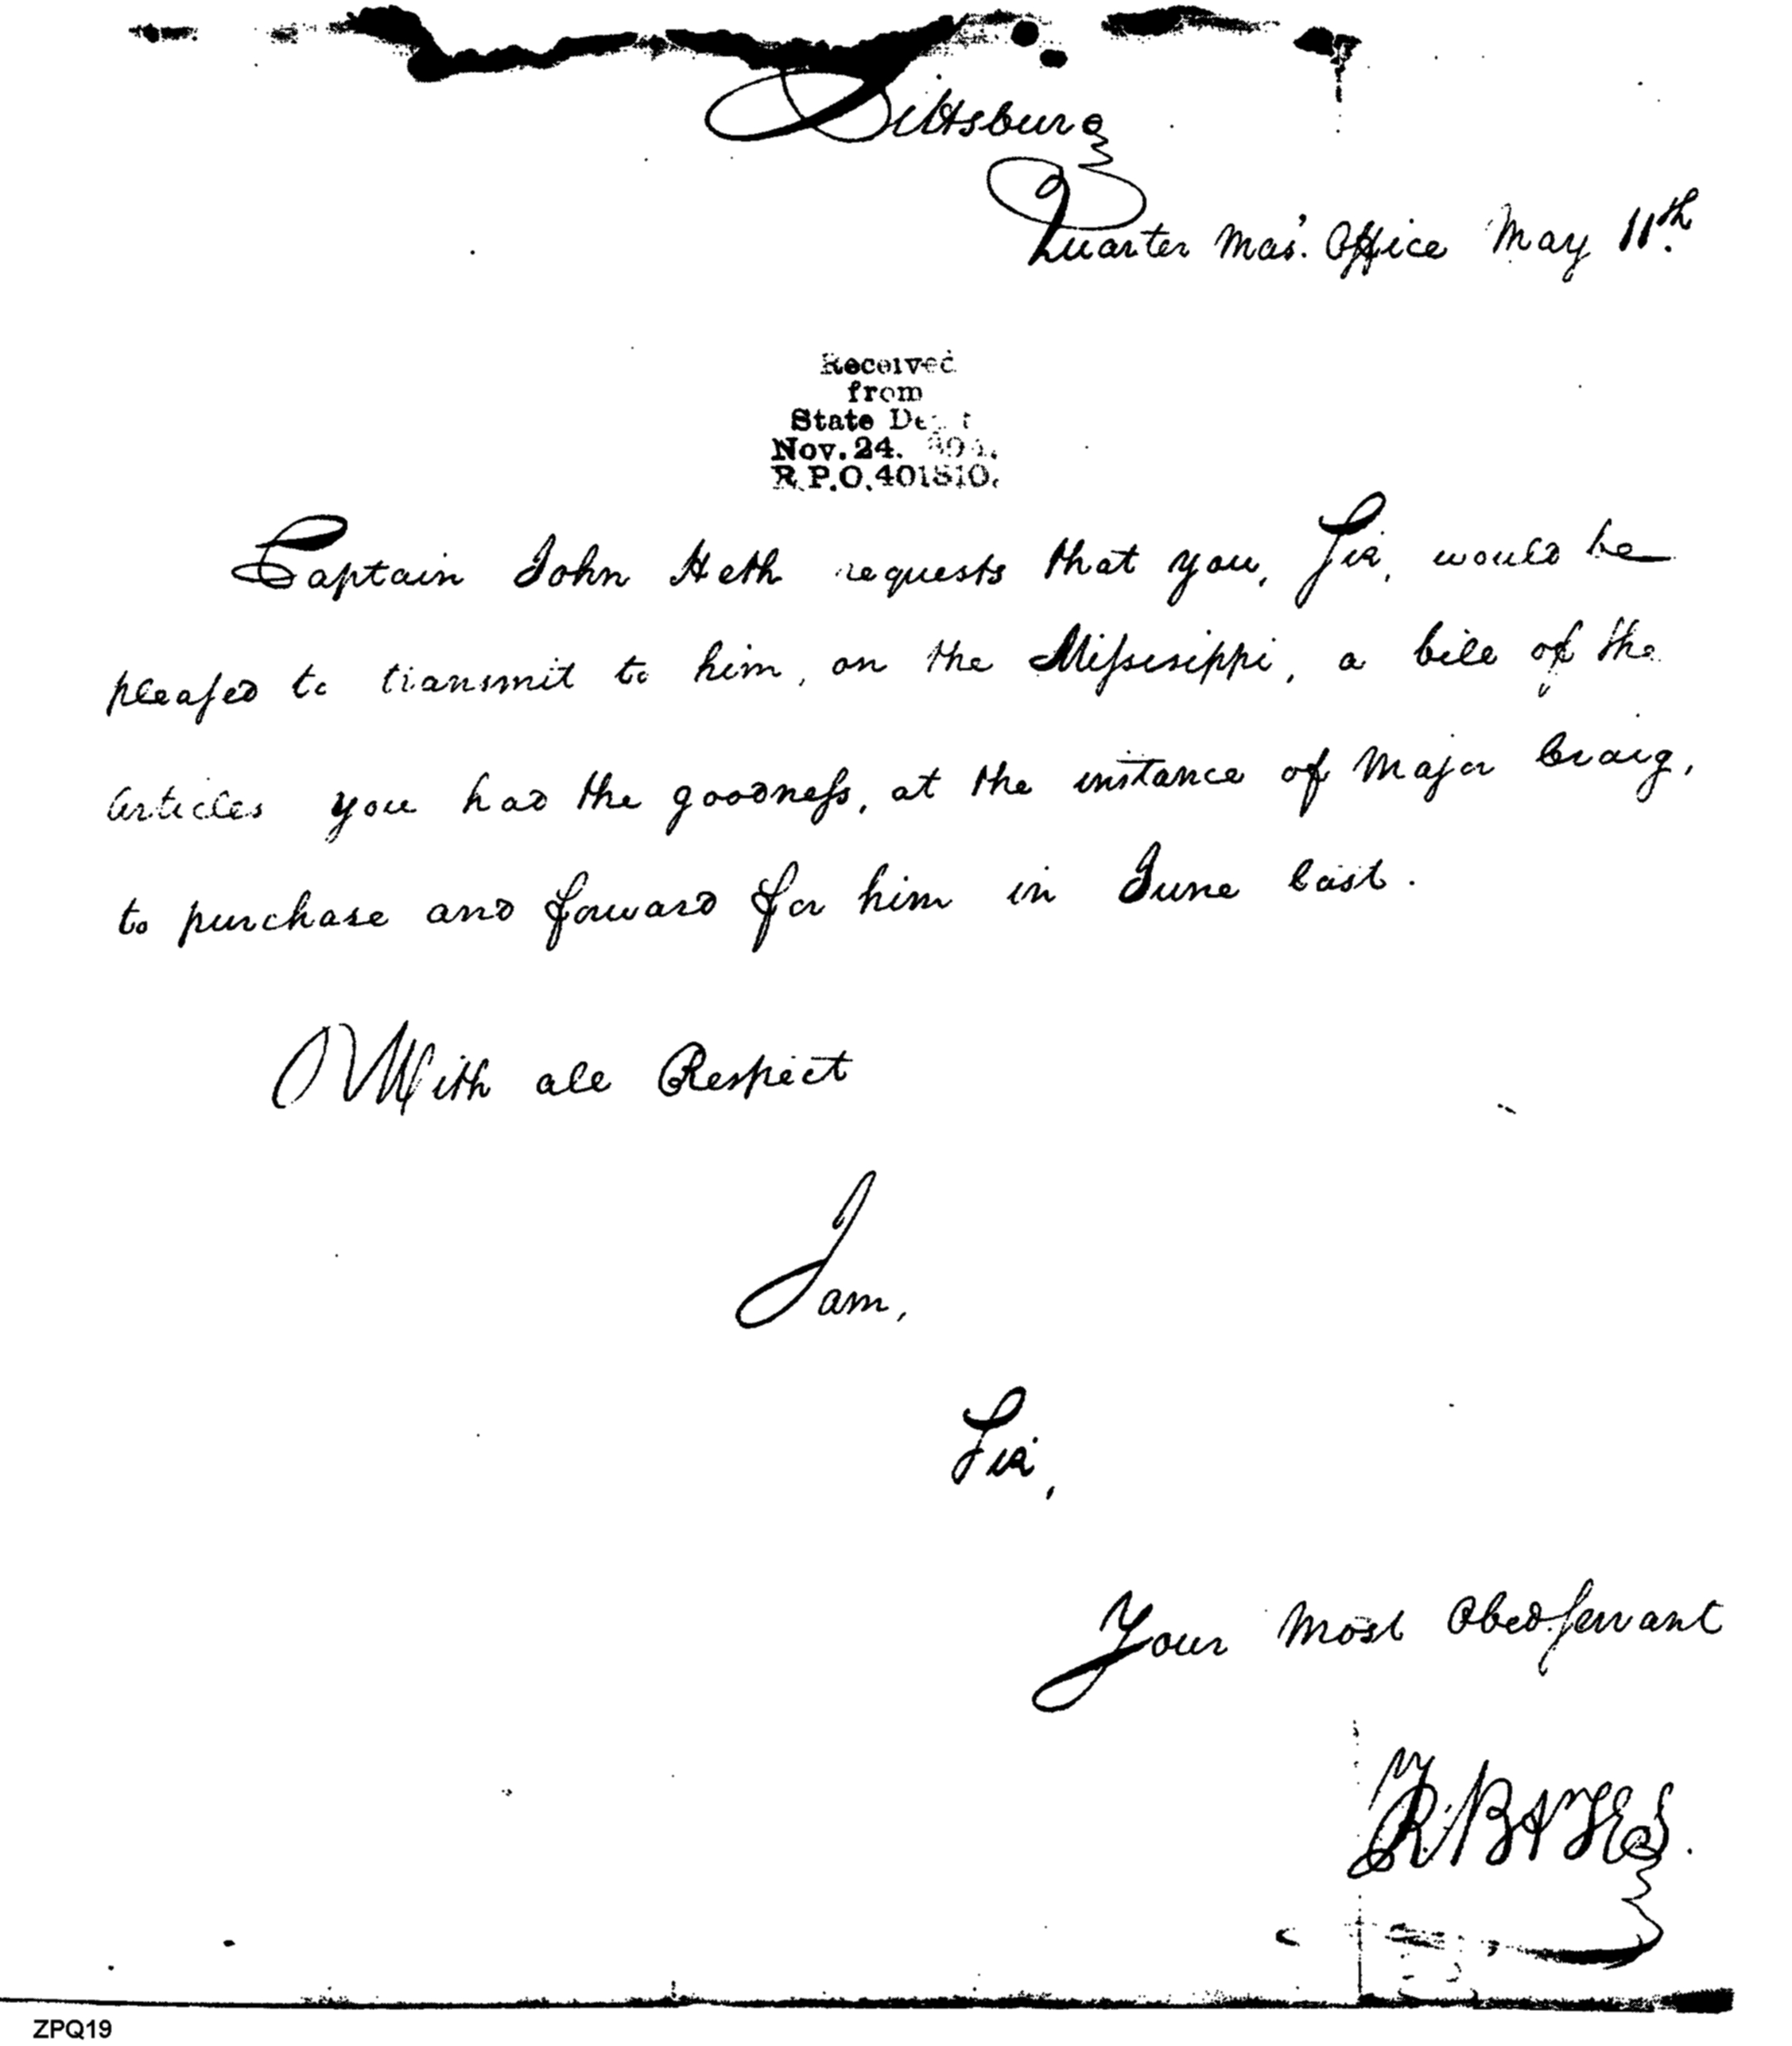 Pittsburg
Quarter Mas'. Office May 11th.
Received
from
State Dept
Nov. 24.
R.P.O. 401810.
Captain John Heth requests that you, Sir, would be
pleased to transmit to him, on the Missisippi, a bill of the
Articles you had the goodness, at the instance of Major Craig,
to purchase and forward for him in June last.
With all Respect
I am,
Sir,
Your Most Obed. Servant
R. BATES.
ZPQ19